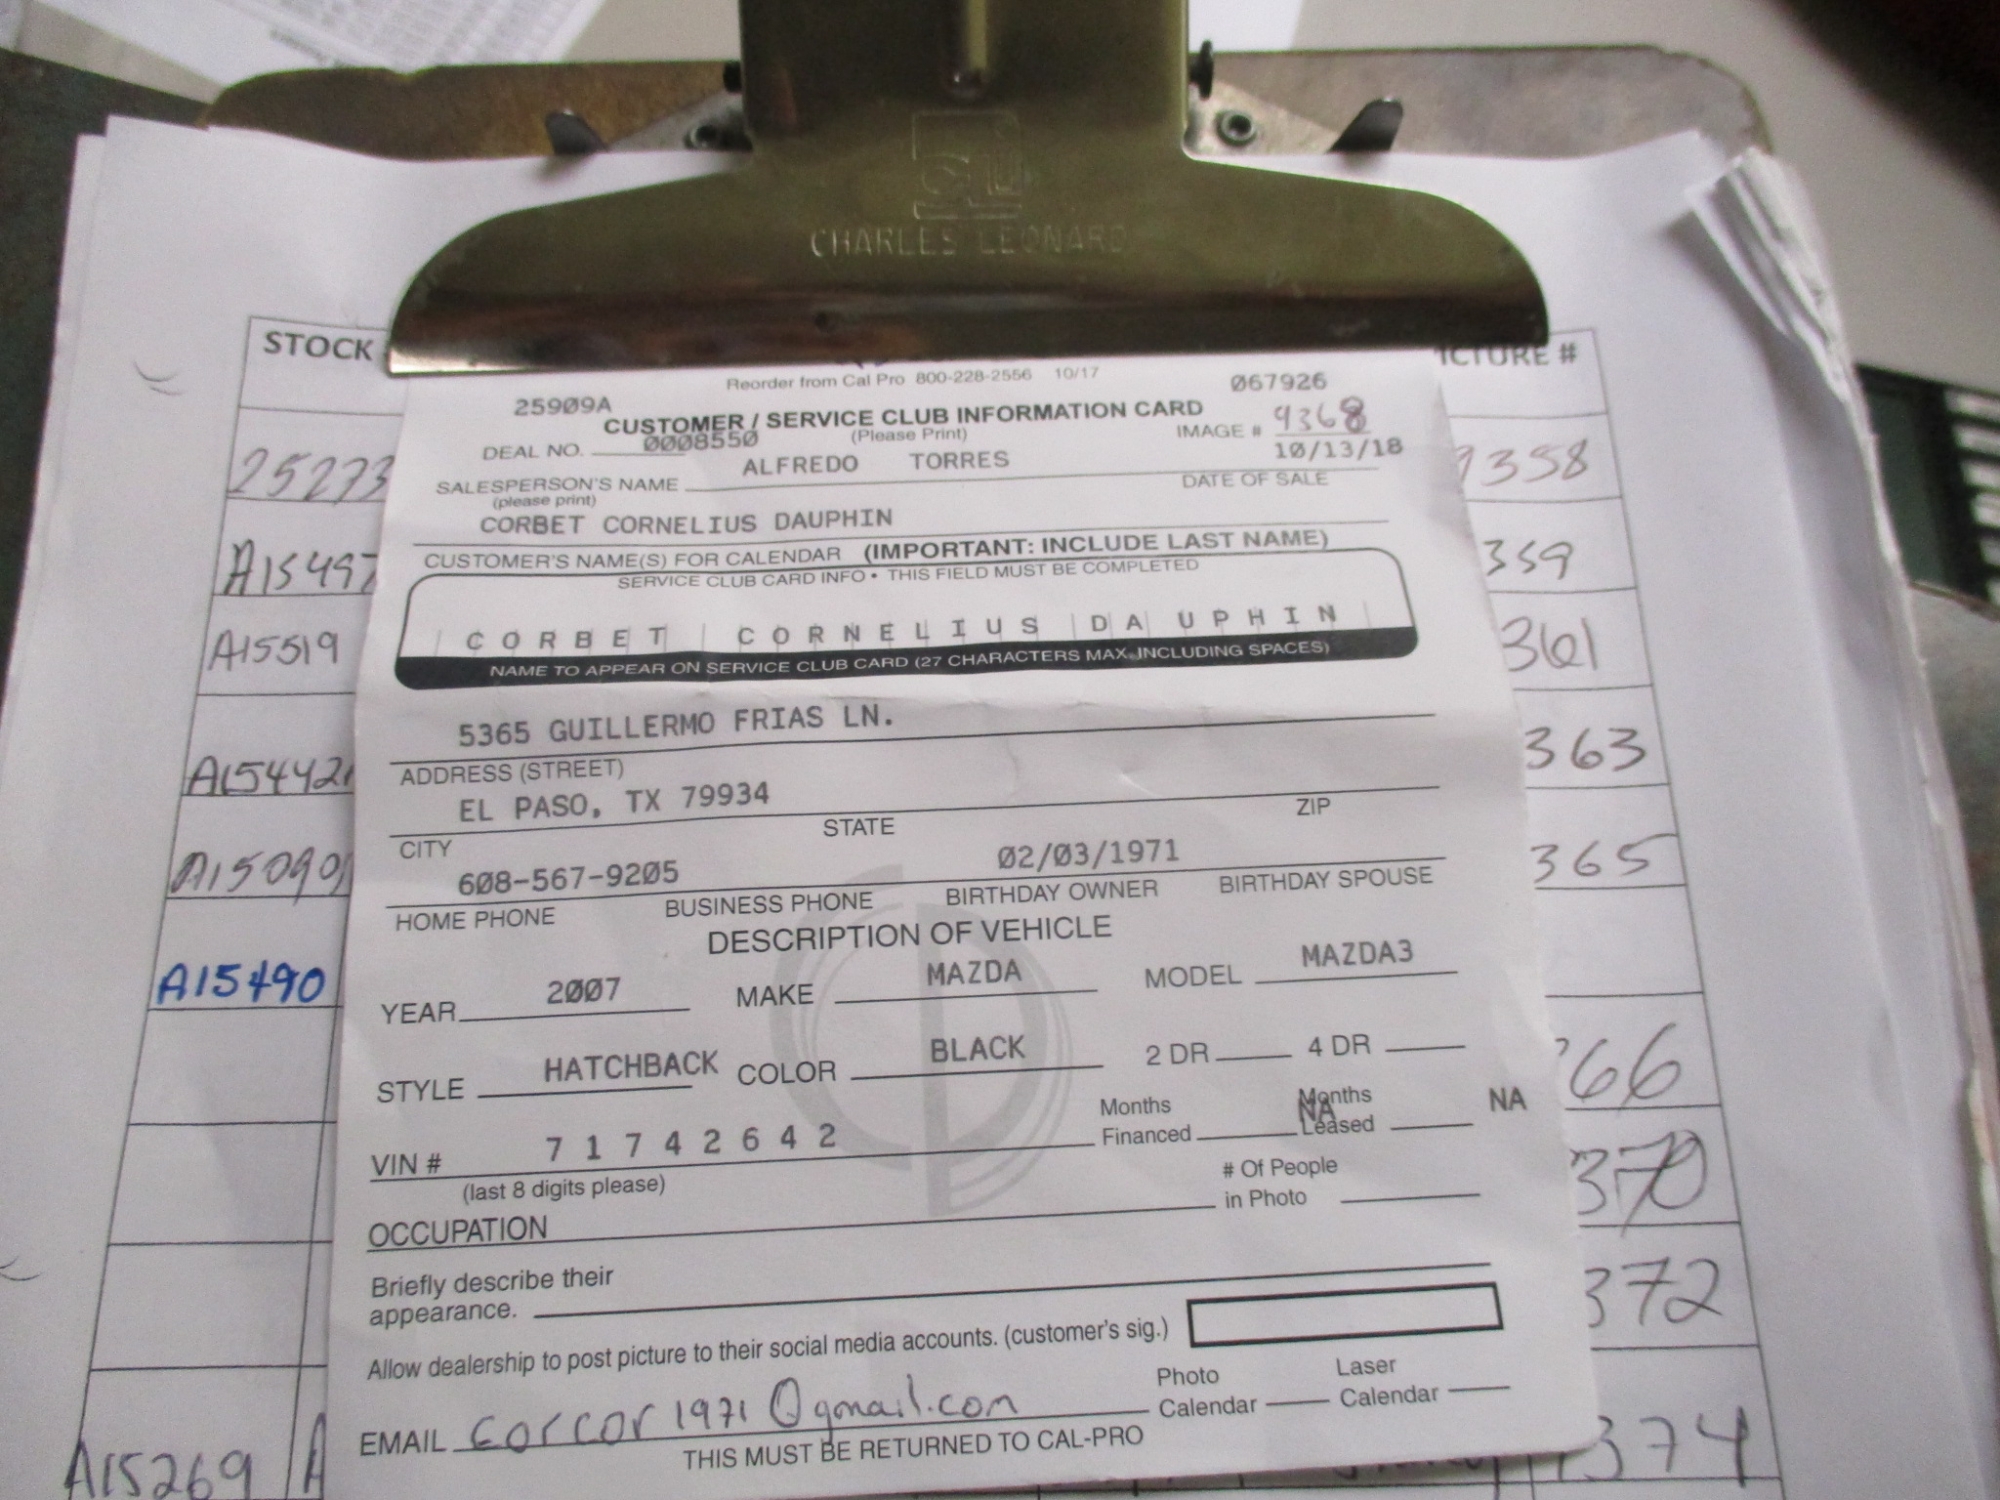 CHARLES LEONARD
STOCK
PICTURE #
Reorder from Cal Pro 800-228-2556 10/17
25909A
067926
CUSTOMER / SERVICE CLUB INFORMATION CARD
DEAL NO. 0008550 (Please Print) IMAGE # 9368
SALESPERSON'S NAME ALFREDO TORRES 10/13/18
(please print) DATE OF SALE
CORBET CORNELIUS DAUPHIN
CUSTOMER'S NAME(S) FOR CALENDAR (IMPORTANT: INCLUDE LAST NAME)
SERVICE CLUB CARD INFO • THIS FIELD MUST BE COMPLETED
CORBET CORNELIUS DAUPHIN
NAME TO APPEAR ON SERVICE CLUB CARD (27 CHARACTERS MAX. INCLUDING SPACES)
5365 GUILLERMO FRIAS LN.
ADDRESS (STREET)
EL PASO, TX 79934
CITY STATE ZIP
608-567-9205 02/03/1971
HOME PHONE BUSINESS PHONE BIRTHDAY OWNER BIRTHDAY SPOUSE
DESCRIPTION OF VEHICLE
YEAR 2007 MAKE MAZDA MODEL MAZDA3
STYLE HATCHBACK COLOR BLACK 2 DR 4 DR
VIN # 7 1 7 4 2 6 4 2 Months Financed NA Months Leased NA
(last 8 digits please)
# Of People in Photo
OCCUPATION
Briefly describe their
appearance.
Allow dealership to post picture to their social media accounts. (customer's sig.)
EMAIL corcor1971@gmail.com Photo Calendar Laser Calendar
THIS MUST BE RETURNED TO CAL-PRO
25273
A15497
A15519
A15442
A15090
A15490
A15269
9358
359
361
363
365
366
370
372
374